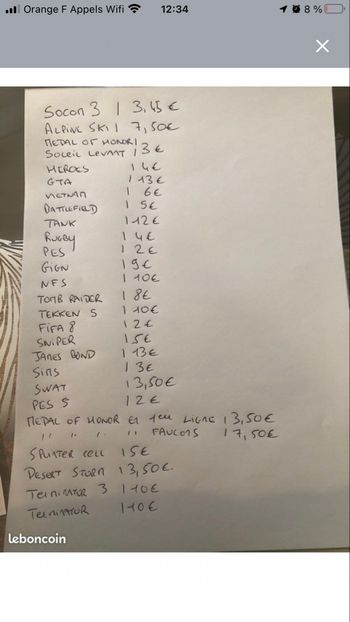 Orange F Appels Wifi 12:34 8 %
Socom 3 | 3,45 €
ALPINE SKI | 7,50€
MEDAL OF HONOR |
SOLEIL LEVANT | 3 €
HEROES | 4€
GTA | 13€
VIETNAM | 6€
BATTLEFIELD | 5€
TANK | 12€
RUGBY | 4€
PES | 2€
GIGN | 9€
NFS | 10€
TOMB RAIDER | 8€
TEKKEN 5 | 10€
FIFA 8 | 2€
SNIPER | 5€
JAMES BOND | 13€
SIMS | 3€
SWAT | 3,50€
PES 5 | 2€
MEDAL OF HONOR EN 1ere LIGNE | 3,50€
" " " " FAUCONS | 7,50€
SPLINTER CELL | 5€
DESERT STORM | 3,50€.
TERMINATOR 3 | 10€
TERMINATOR | 10€
leboncoin